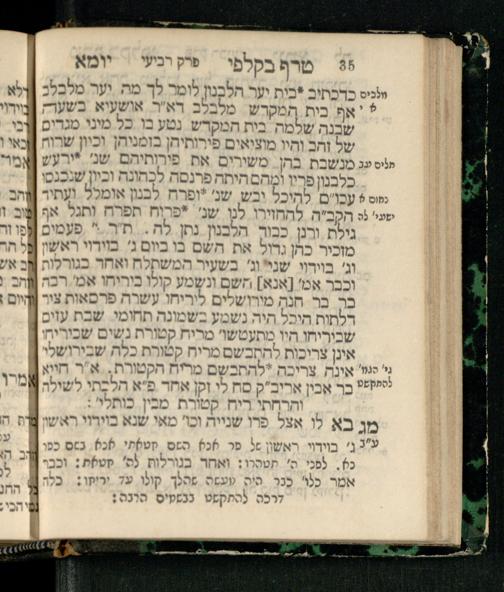 35 טרף בקלפי פרק רביעי יומא
מלכים א׳ י׳
כדכתיב *בית יער הלבנון לומר לך מה יער מלבלב
אף בית המקדש מלבלב דא״ר אושעיא בשעה
שבנה שלמה בית המקדש נטע בו כל מיני מגדים
של זהב והיו מוציאים פירותיהן בזמניהן וכיון שרוח
תלים עב
מנשבת בהן משירים את פירותיהם שנ׳ *ירעש
כלבנון פריו ומהם היתה פרנסה לכהונה וכיון שנכנסו
נחום א
עכו״ם להיכל יבש שנ׳ *ופרח לבנון אומלל ועתיד
ישעי׳ לה
הקב״ה להחזירו לנו שנ׳ *פרוח תפרח ותגל אף
גילת ורנן כבוד הלבנון נתן לה. ת״ר י׳ פעמים
מזכיר כהן גדול את השם בו ביום ג׳ בוידוי ראשון
וג׳ בוידוי שני וג׳ בשעיר המשתלח ואחד בגורלות
וכבר אמ׳ [אנא] השם ונשמע קולו ביריחו אמ׳ רבה
בר בר חנה מירושלים ליריחו עשרה פרסאות ציר
דלתות היכל היה נשמע בשמונה תחומי שבת עזים
שביריחו היו מתעטשו׳ מריח קטורת נשים שביריחו
אינן צריכות להתבשם מריח קטורת כלה שבירושלי׳
גי׳ הגמ׳ להתקשט
אינה צריכה *להתבשם מריח הקטורת. א״ר חייא
בר אבין אריב״ק סח לי זקן אחד פ״א הלכתי לשילה
והרחתי ריח קטורת מבין כותלי׳:
מג ע״ב
בא לו אצל פרו שנייה וכו׳ מאי שנא בוידוי ראשון
ג׳ בוידוי ראשון של פר אנא השם חטאתי אנא בשם כפר
נא. לפני ה׳ תטהרו: ואחד בגורלות לה׳ חטאת: וכבר
אמר כלו׳ כבר היה מעשה שהלך קולו עד יריחו: כלה
דרכה להתקשט בבשמים הרבה: